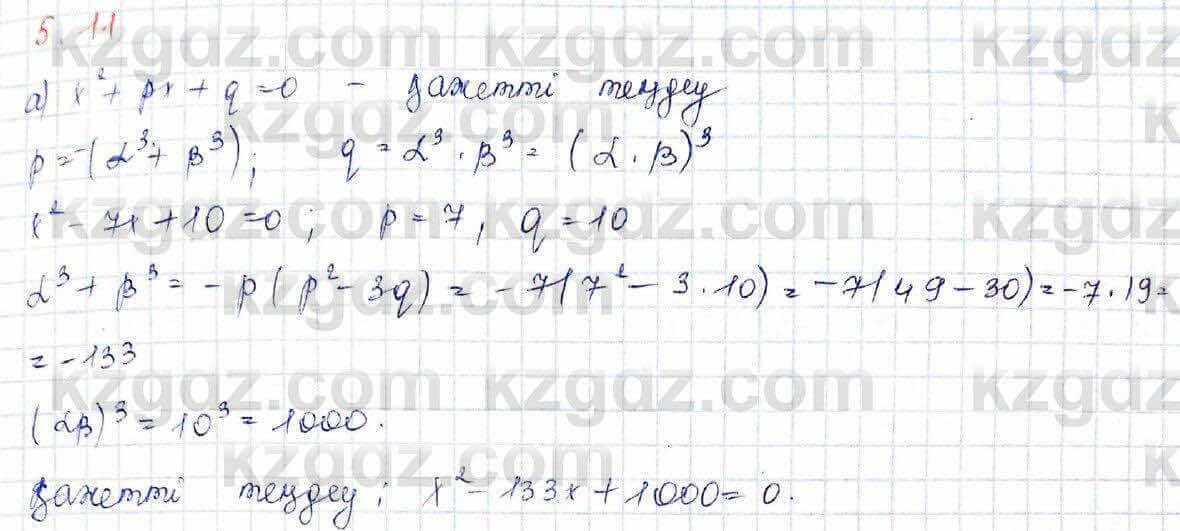 5.11
а) x² + px + q = 0 – қажетті теңдеу
p = -(α³ + β³); q = α³ · β³ = (α · β)³
x² - 7x + 10 = 0; p = 7, q = 10
α³ + β³ = -p(p² - 3q) = -7(7² - 3·10) = -7(49 - 30) = -7·19 =
= -133
(αβ)³ = 10³ = 1000.
қажетті теңдеу: x² - 133x + 1000 = 0.
kzgdz.com